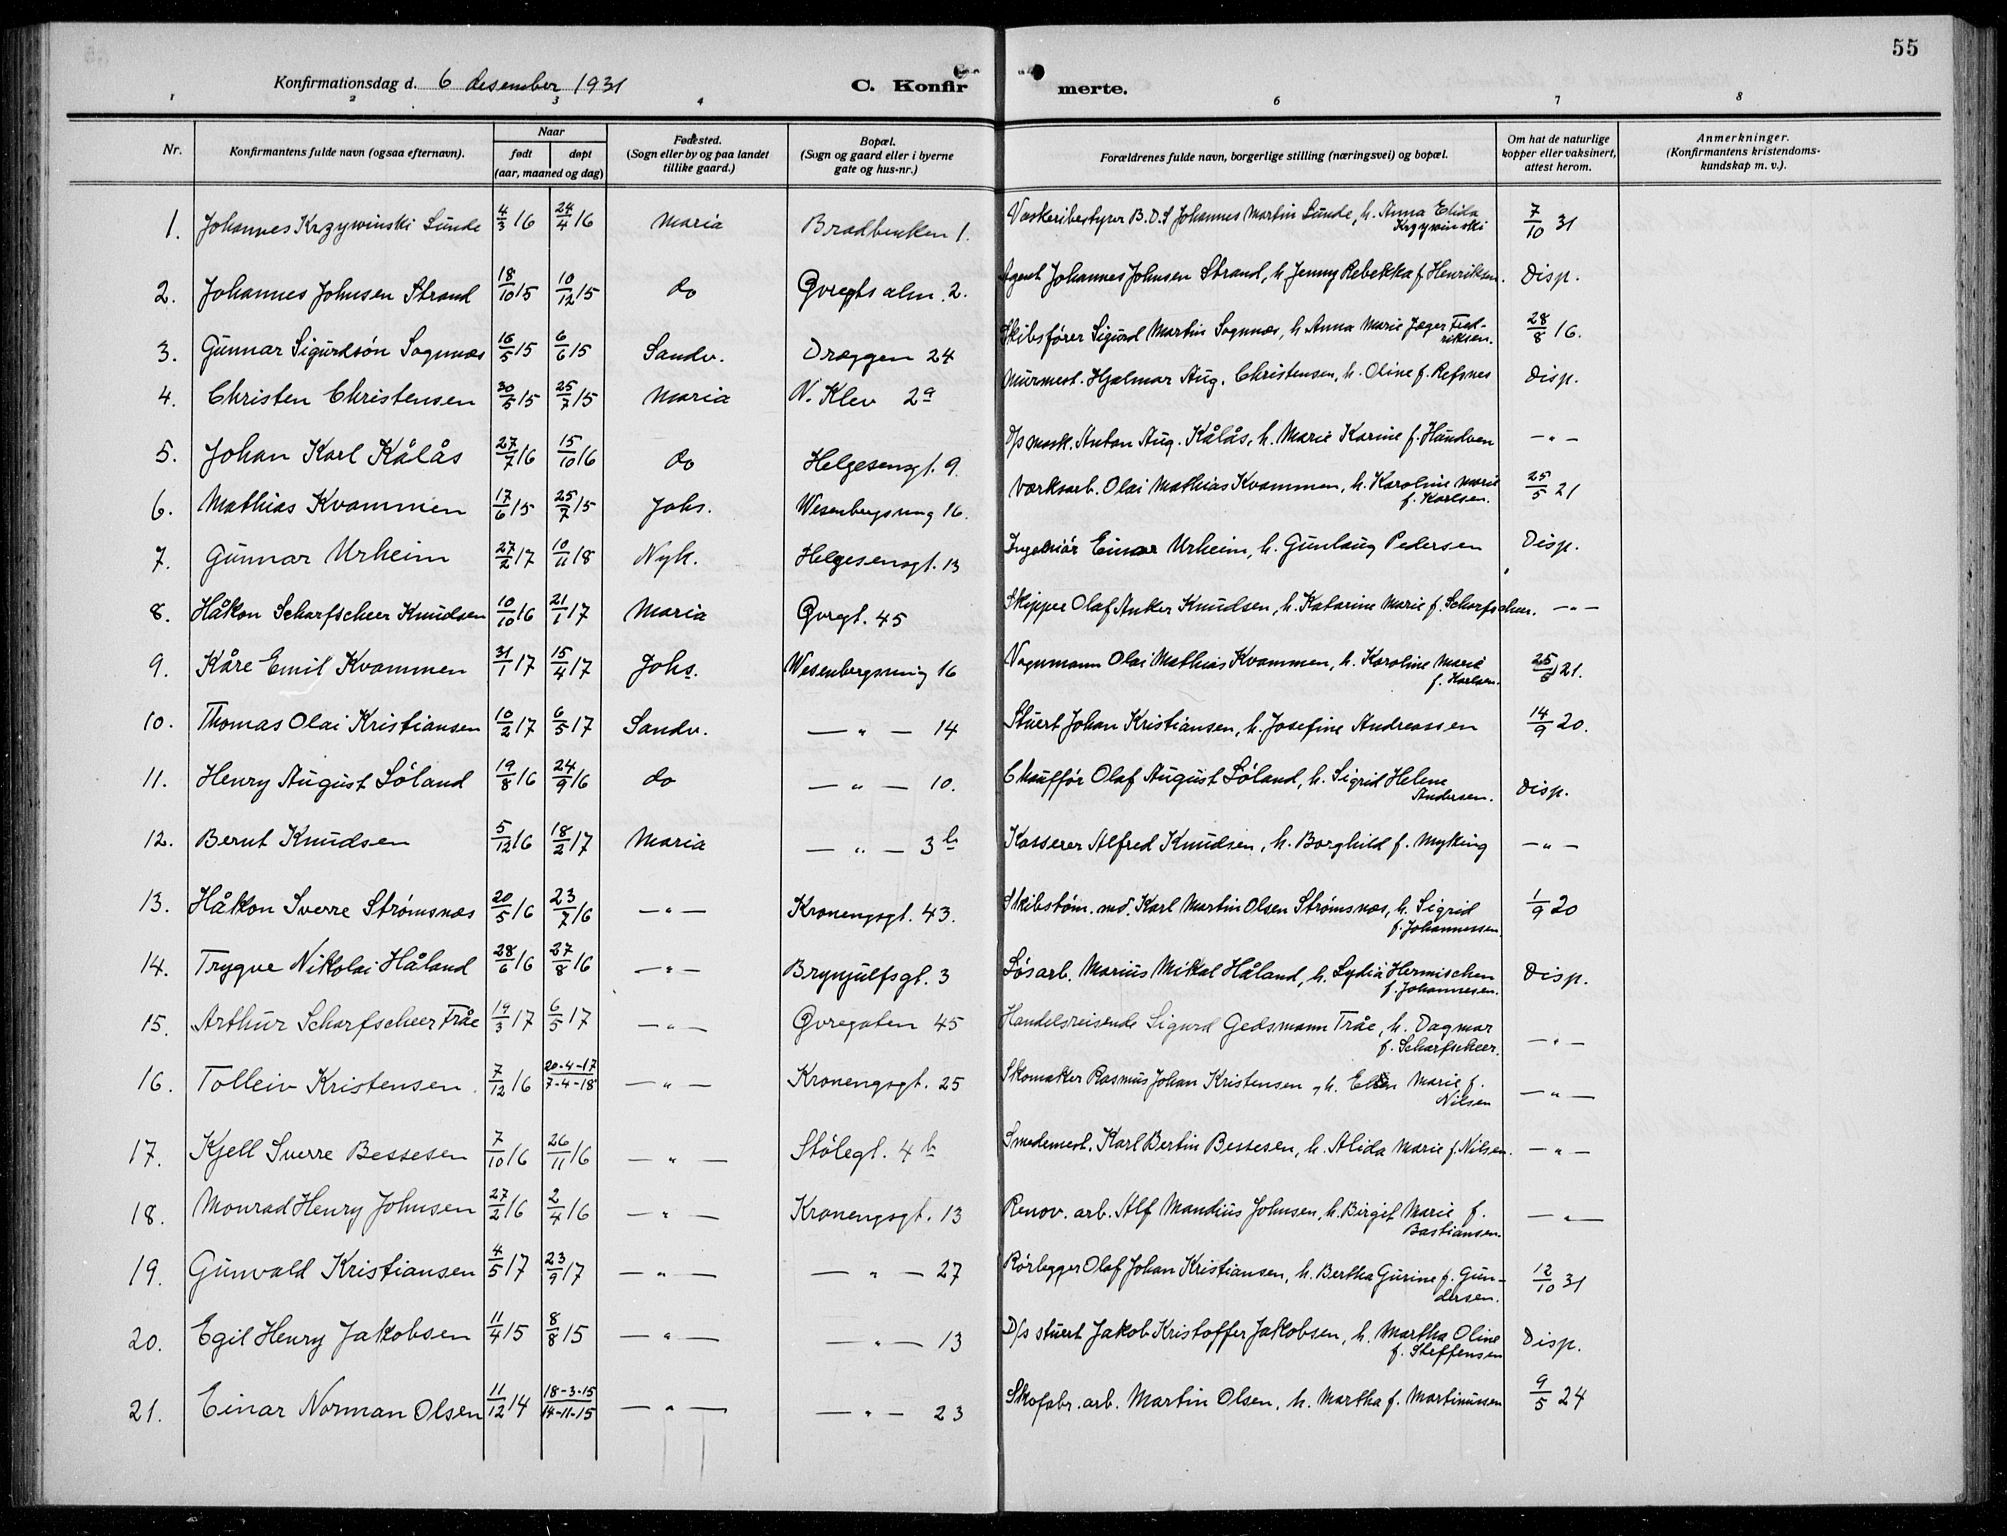 55
Konfirmationsdag d. 6 desember 1931
C. Konfirmerte.
1 2 3 4 6 7 8
Nr.
Konfirmantens fulde navn (ogsaa efternavn).
Naar
født døpt
(aar, maaned og dag)
Fødested.
(Sogn eller by og paa landet
tillike gaard.)
Bopæl.
(Sogn og gaard eller i byerne
gate og hus-nr.)
Forældrenes fulde navn, borgerlige stilling (næringsvei) og bopæl.
Om hat de naturlige
kopper eller vaksinert,
attest herom.
Anmerkninger.
(Konfirmantens kristendoms-
kundskap m. v.).
1. Johannes Krzywinski Sunde 4/3 16 24/4 16 Maria Bradbenken 1. Vaskeribestyrer B.D.S Johannes Martin Sunde, h. Anna Elida Krzywinski 7/10 31
2. Johannes Johnsen Strand 18/10 15 10/12 15 do Øvregts alm. 2. Agent Johannes Johnsen Strand, h. Jenny Rebekka f. Henriksen. Disp.
3. Gunnar Sigurdsøn Sognnæs 16/5 15 6/6 15 Sandv. Dræggen 24 Skibsfører Sigurd Martin Sognnæs, h. Anna Marie Jæger Fredriksen. 28/8 16.
4. Christen Christensen 30/5 15 25/7 15 Maria N. Klev 2a Murmest. Hjalmar Aug. Christensen, h. Oline f. Refsnes Disp.
5. Johan Karl Kålås 27/7 16 15/10 16 do Helgesensgt. 9. D/s mask. Anton Aug. Kålås, h. Marie Karine f. Handven — " —
6. Mathias Kvammen 17/6 15 25/7 15 Johs. Wesenbergsmug 16. Værksarb. Olai Mathias Kvammen, h. Karoline Marie f. Karlsen. 25/5 21
7. Gunnar Urheim 27/2 17 10/11 18 Nyk. Helgesensgt. 13 Ingeniør Einar Urheim, h. Gunlaug Pedersen Disp.
8. Håkon Scharfscheer Knudsen 10/10 16 21/1 17 Maria Øvregt. 45 Skipper Olaf Anker Knudsen, h. Katarine Marie f. Scharfscheer. — " —
9. Kåre Emil Kvammen 31/1 17 15/4 17 Johs. Wesenbergsmug 16 Vognmann Olai Mathias Kvammen, h. Karoline Marie f. Karlsen. 25/5 21.
10. Thomas Olai Kristiansen 10/2 17 6/5 17 Sandv. — " — 14 Stuert Johan Kristiansen, h. Josefine Andreassen 14/9 20.
11. Henry August Søland 19/8 16 24/9 16 do — " — 10. Chauffør Olaf August Søland, h. Sigrid Helene Andersen. Disp.
12. Bernt Knudsen 5/12 16 18/2 17 Maria — " — 3b Kasserer Alfred Knudsen, h. Borghild f. Myking — " —
13. Håkon Sverre Strømsnæs 20/5 16 23/7 16 — " — Kronengsgt. 43. Skibstøm. md. Karl Martin Olsen Strømsnæs, h. Sigrid f. Johannessen. 1/9 20
14. Trygve Nikolai Håland 28/6 16 27/8 16 — " — Brynjulfsgt. 3 Løsarb. Marius Mikal Håland, h. Lydia Hermischen f. Johannesen. Disp.
15. Arthur Scharfscheer Tråe 19/3 17 6/5 17 — " — Øvregaten 45 Handelsreisende Sigurd Gedsmann Tråe, h. Dagmar f. Scharfscheer. — " —
16. Tolleiv Kristensen. 7/12 16 20-4-17 / 7-4-18 — " — Kronengsgt. 25 Skomaker Rasmus Johan Kristensen, h. Ellen Marie f. Nilsen — " —
17. Kjell Sverre Bessesen 7/10 16 26/11 16 — " — Stølegt. 4b Smedemest. Karl Bertin Bessesen, h. Alida Marie f. Nilsen. — " —
18. Monrad Henry Johnsen 27/2 16 2/4 16 — " — Kronengsgt. 13 Renov. arb. Alf Mandius Johnsen, h. Birgit Marie f. Bastiansen. — " —
19. Gunvald Kristiansen 4/5 17 23/9 17 — " — — " — 27 Rørlegger Olaf Johan Kristiansen, h. Bertha Gurine f. Gundersen. 12/10 31
20. Egil Henry Jakobsen 11/4 15 8/8 15 — " — — " — 13 D/s stuert Jakob Kristoffer Jakobsen, h. Martha Oline f. Steffensen Disp.
21. Einar Norman Olsen 11/12 14 18-3-15 / 14-11-15 — " — — " — 23 Skofabr. arb. Martin Olsen, h. Martha f. Martinussen 9/5 24